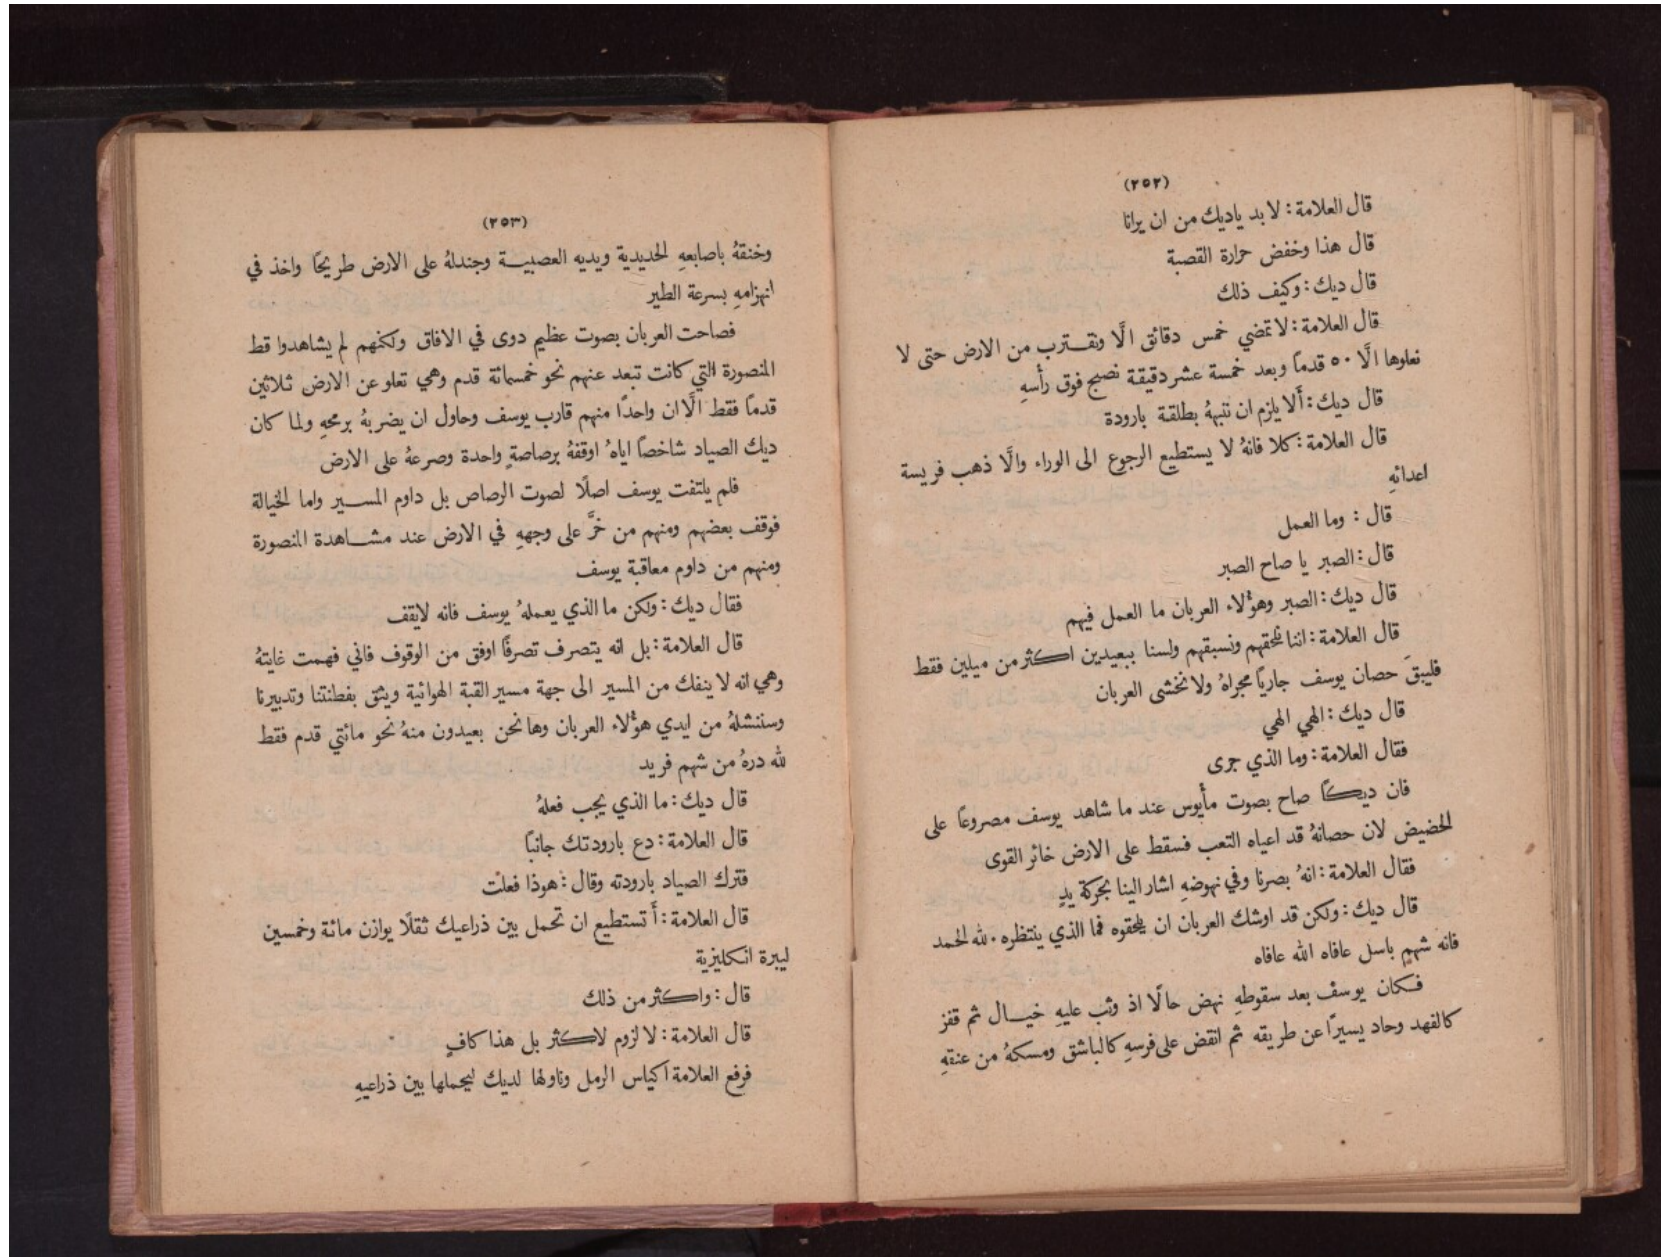 (٢٥٢)
قال العلامة: لا بد ياديك من ان يرانا
قال هذا وخفض حرارة القصبة
قال ديك: وكيف ذلك
قال العلامة: لا تمضي خمس دقائق الَّا ونقترب من الارض حتى لا
نعلوها الَّا ٥٠ قدمًا وبعد خمسة عشر دقيقة نصبح فوق رأْسهِ
قال ديك: أَلا يلزم ان ننبههُ بطلقة بارودة
قال العلامة: كلا فانهُ لا يستطيع الرجوع الى الوراء والَّا ذهب فريسة
اعدائهِ
قال: وما العمل
قال: الصبر يا صاح الصبر
قال ديك: الصبر وهؤلاء العربان ما العمل فيهم
قال العلامة: اننا نلحقهم ونسبقهم ولسنا ببعيدين اكثر من ميلين فقط
فليبقَ حصان يوسف جاريًا مجراهُ ولا نخشى العربان
قال ديك: الهي الهي
فقال العلامة: وما الذي جرى
فان ديكًا صاح بصوت مأْيوس عند ما شاهد يوسف مصروعًا على
الحضيض لان حصانهُ قد اعياه التعب فسقط على الارض خائر القوى
فقال العلامة: انهُ بصرنا وفي نهوضهِ اشار الينا بحركة يدٍ
قال ديك: ولكن قد اوشك العربان ان يلحقوه فما الذي ينتظره. لله الحمد
فانه شهم باسل عافاه الله عافاه
فكان يوسف بعد سقوطهِ نهض حالًا اذ وثب عليهِ خيال ثم قفز
كالفهد وحاد يسيرًا عن طريقه ثم انقض على فرسهِ كالباشق ومسكهُ من عنقهِ
(٢٥٣)
وخنقهُ باصابعهِ الحديدية ويديه العصبية وجندلهُ على الارض طريحًا واخذ في
انهزامهِ بسرعة الطير
فصاحت العربان بصوت عظيم دوى في الافاق ولكنهم لم يشاهدوا قط
المنصورة التي كانت تبعد عنهم نحو خمسمائة قدم وهي تعلو عن الارض ثلاثين
قدمًا فقط الَّا ان واحدًا منهم قارب يوسف وحاول ان يضربهُ برمحهِ ولما كان
ديك الصياد شاخصًا اياهُ اوقفهُ برصاصةٍ واحدة وصرعهُ على الارض
فلم يلتفت يوسف اصلًا لصوت الرصاص بل داوم المسير واما الخيالة
فوقف بعضهم ومنهم من خرَّ على وجههِ في الارض عند مشاهدة المنصورة
ومنهم من داوم معاقبة يوسف
فقال ديك: ولكن ما الذي يعملهُ يوسف فانه لايقف
قال العلامة: بل انه يتصرف تصرفًا اوفق من الوقوف فاني فهمت غايتهُ
وهي انه لا ينفك من المسير الى جهة مسير القبة الهوائية ويثق بفطنتنا وتدبيرنا
وسننشلهُ من ايدي هؤلاء العربان وها نحن بعيدون منهُ نحو مائتي قدم فقط
لله درهُ من شهم فريد
قال ديك: ما الذي يجب فعلهُ
قال العلامة: دع بارودتك جانبًا
فترك الصياد بارودته وقال: هوذا فعلت
قال العلامة: أَتستطيع ان تحمل بين ذراعيك ثقلًا يوازن مائة وخمسين
ليبرة انكليزية
قال: واكثر من ذلك
قال العلامة: لا لزوم لاكثر بل هذا كافٍ
فرفع العلامة اكياس الرمل وناولها لديك ليحملها بين ذراعيهِ